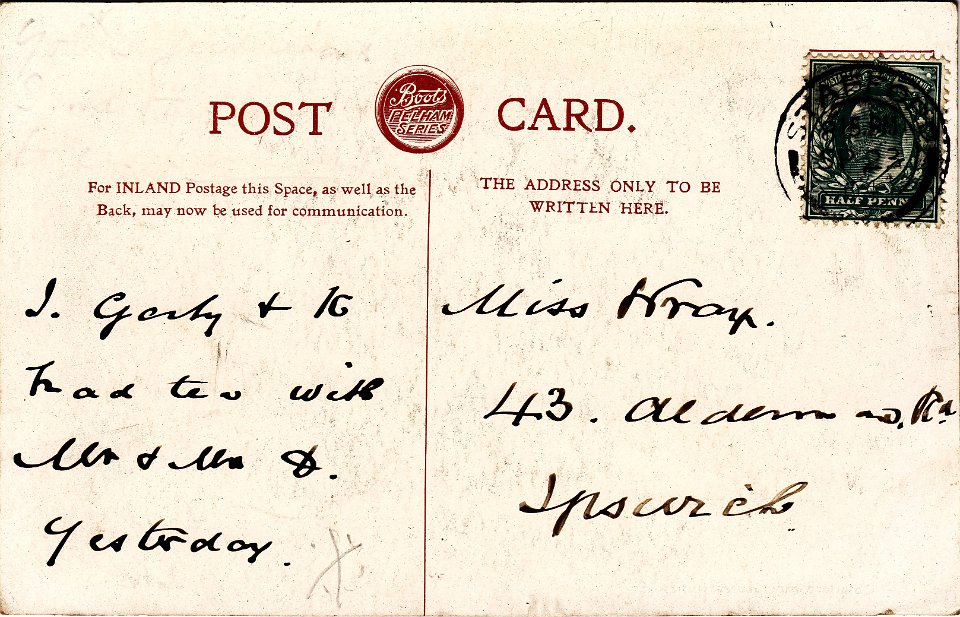 POST CARD.
Boots
PELHAM
SERIES
For INLAND Postage this Space, as well as the
Back, may now be used for communication.
THE ADDRESS ONLY TO BE
WRITTEN HERE.
HALF PENNY
I. Gerty & K
had tea with
Mr & Mrs D.
Yesterday.
Miss Wray.
43. Alderman Rd
Ipswich